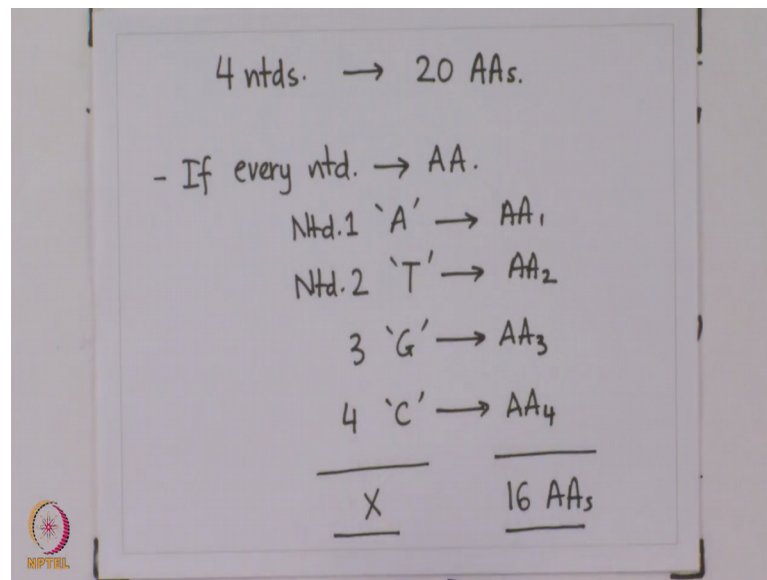 4 ntds. → 20 AAs.
- If every ntd. → AA.
Ntd.1 `A' → AA₁
Ntd.2 `T' → AA₂
3 `G' → AA₃
4 `C' → AA₄
X 16 AAs
NPTEL